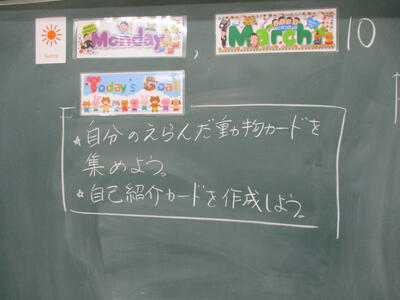 Sunny
Monday, March 10
Today's Goal
☆自分のえらんだ動物カードを
集めよう。
☆自己紹介カードを作成しよう。